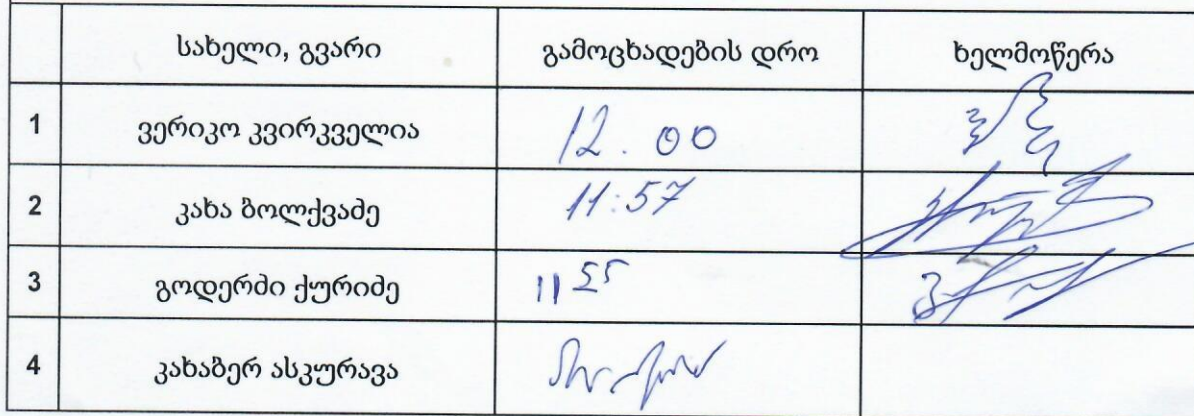 სახელი, გვარი გამოცხადების დრო ხელმოწერა
1 ვერიკო კვირკველია 12.00
2 კახა ბოლქვაძე 11:57
3 გოდერძი ქურიძე 11 55
4 კახაბერ ასკურავა